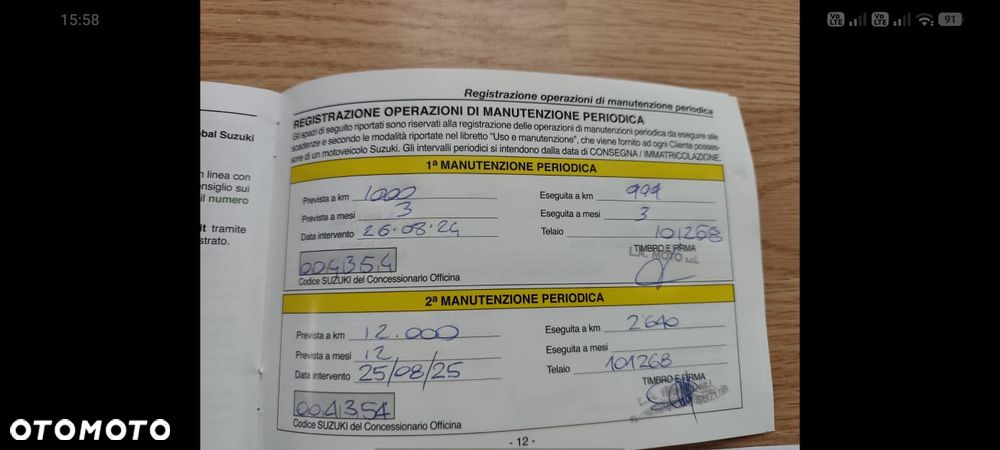 15:58
Vo LTE Vo LTE 91
Registrazione operazioni di manutenzione periodica
REGISTRAZIONE OPERAZIONI DI MANUTENZIONE PERIODICA
Gli spazi di seguito riportati sono riservati alla registrazione delle operazioni di manutenzioni periodica da eseguire alle
scadenze e secondo le modalità riportate nel libretto "Uso e manutenzione", che viene fornito ad ogni Cliente posses-
sore di un motoveicolo Suzuki. Gli intervalli periodici si intendono dalla data di CONSEGNA / IMMATRICOLAZIONE.
bal Suzuki
linea con
nsiglio sui
il numero
it tramite
strato.
1ª MANUTENZIONE PERIODICA
Prevista a km 1000
Eseguita a km 999
Prevista a mesi 3
Eseguita a mesi 3
Data intervento 26.08.24
Telaio 101268
TIMBRO E FIRMA
L.A. MOTO s.r.l.
004354
Codice SUZUKI del Concessionario Officina
2ª MANUTENZIONE PERIODICA
Prevista a km 12.000
Eseguita a km 2640
Prevista a mesi 12
Eseguita a mesi
Data intervento 25/08/25
Telaio 101268
TIMBRO E FIRMA
SUZUKI
004354
Codice SUZUKI del Concessionario Officina
- 12 -
OTOMOTO